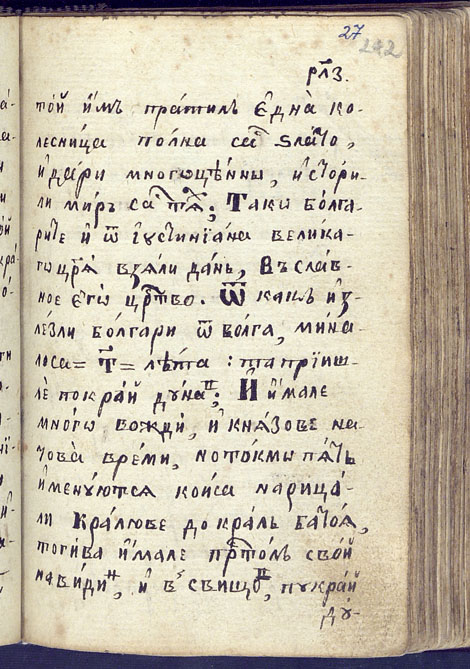 27
242
рл҃з.
то́й и́мъ пра́тилъ є҆дна̀ ко-
лесни́ца по́лна са̾ ѕла́то,
и҆ да́ри многоцѣ́нны, и҆ стори́-
ли ми́ръ са̾ тѧ́х; Такѡ бо́лга-
рите и҆ ѿ і҆ꙋстинїа́на вели́ка-
гѡ цр҃ѧ̀ взѧ́ли да́нь, Въ сла́в-
ное є҆гѡ̀ цр҃тво. Ѿ ка́къ и҆з-
лѣ́зли бо́лгари ѿ во́лга, ми́на-
лоса= т҃ =лѣ́та : та прїиш-
лѐ покра́й дꙋ́наⷫ; И҆ и҆́мале
мно́гѡ вожди́, и҆ кнѧ́зове на
това̀ вре́ми, но то́кмы пѧ́ть
и҆менꙋ́ютсѧ кои́са нарица́-
ли Кра́лѡве до кра́ль Бато́ѧ,
тоги́ва и҆́мале прⷭ҇то́лъ сво́й
на ви́диⷩ, и҆ в̾ сви́щоⷫ, пꙋкра́й
дꙋ-